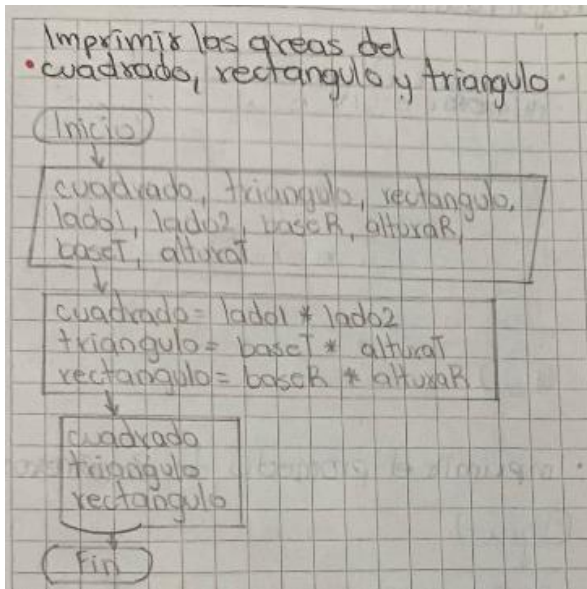 Imprimir las areas del
• cuadrado, rectangulo y triangulo
Inicio
cuadrado, triangulo, rectangulo,
lado1, lado2, baseR, alturaR,
baseT, alturaT
cuadrado = lado1 * lado2
triangulo = baseT * alturaT
rectangulo = baseR * alturaR
cuadrado
triangulo
rectangulo
Fin